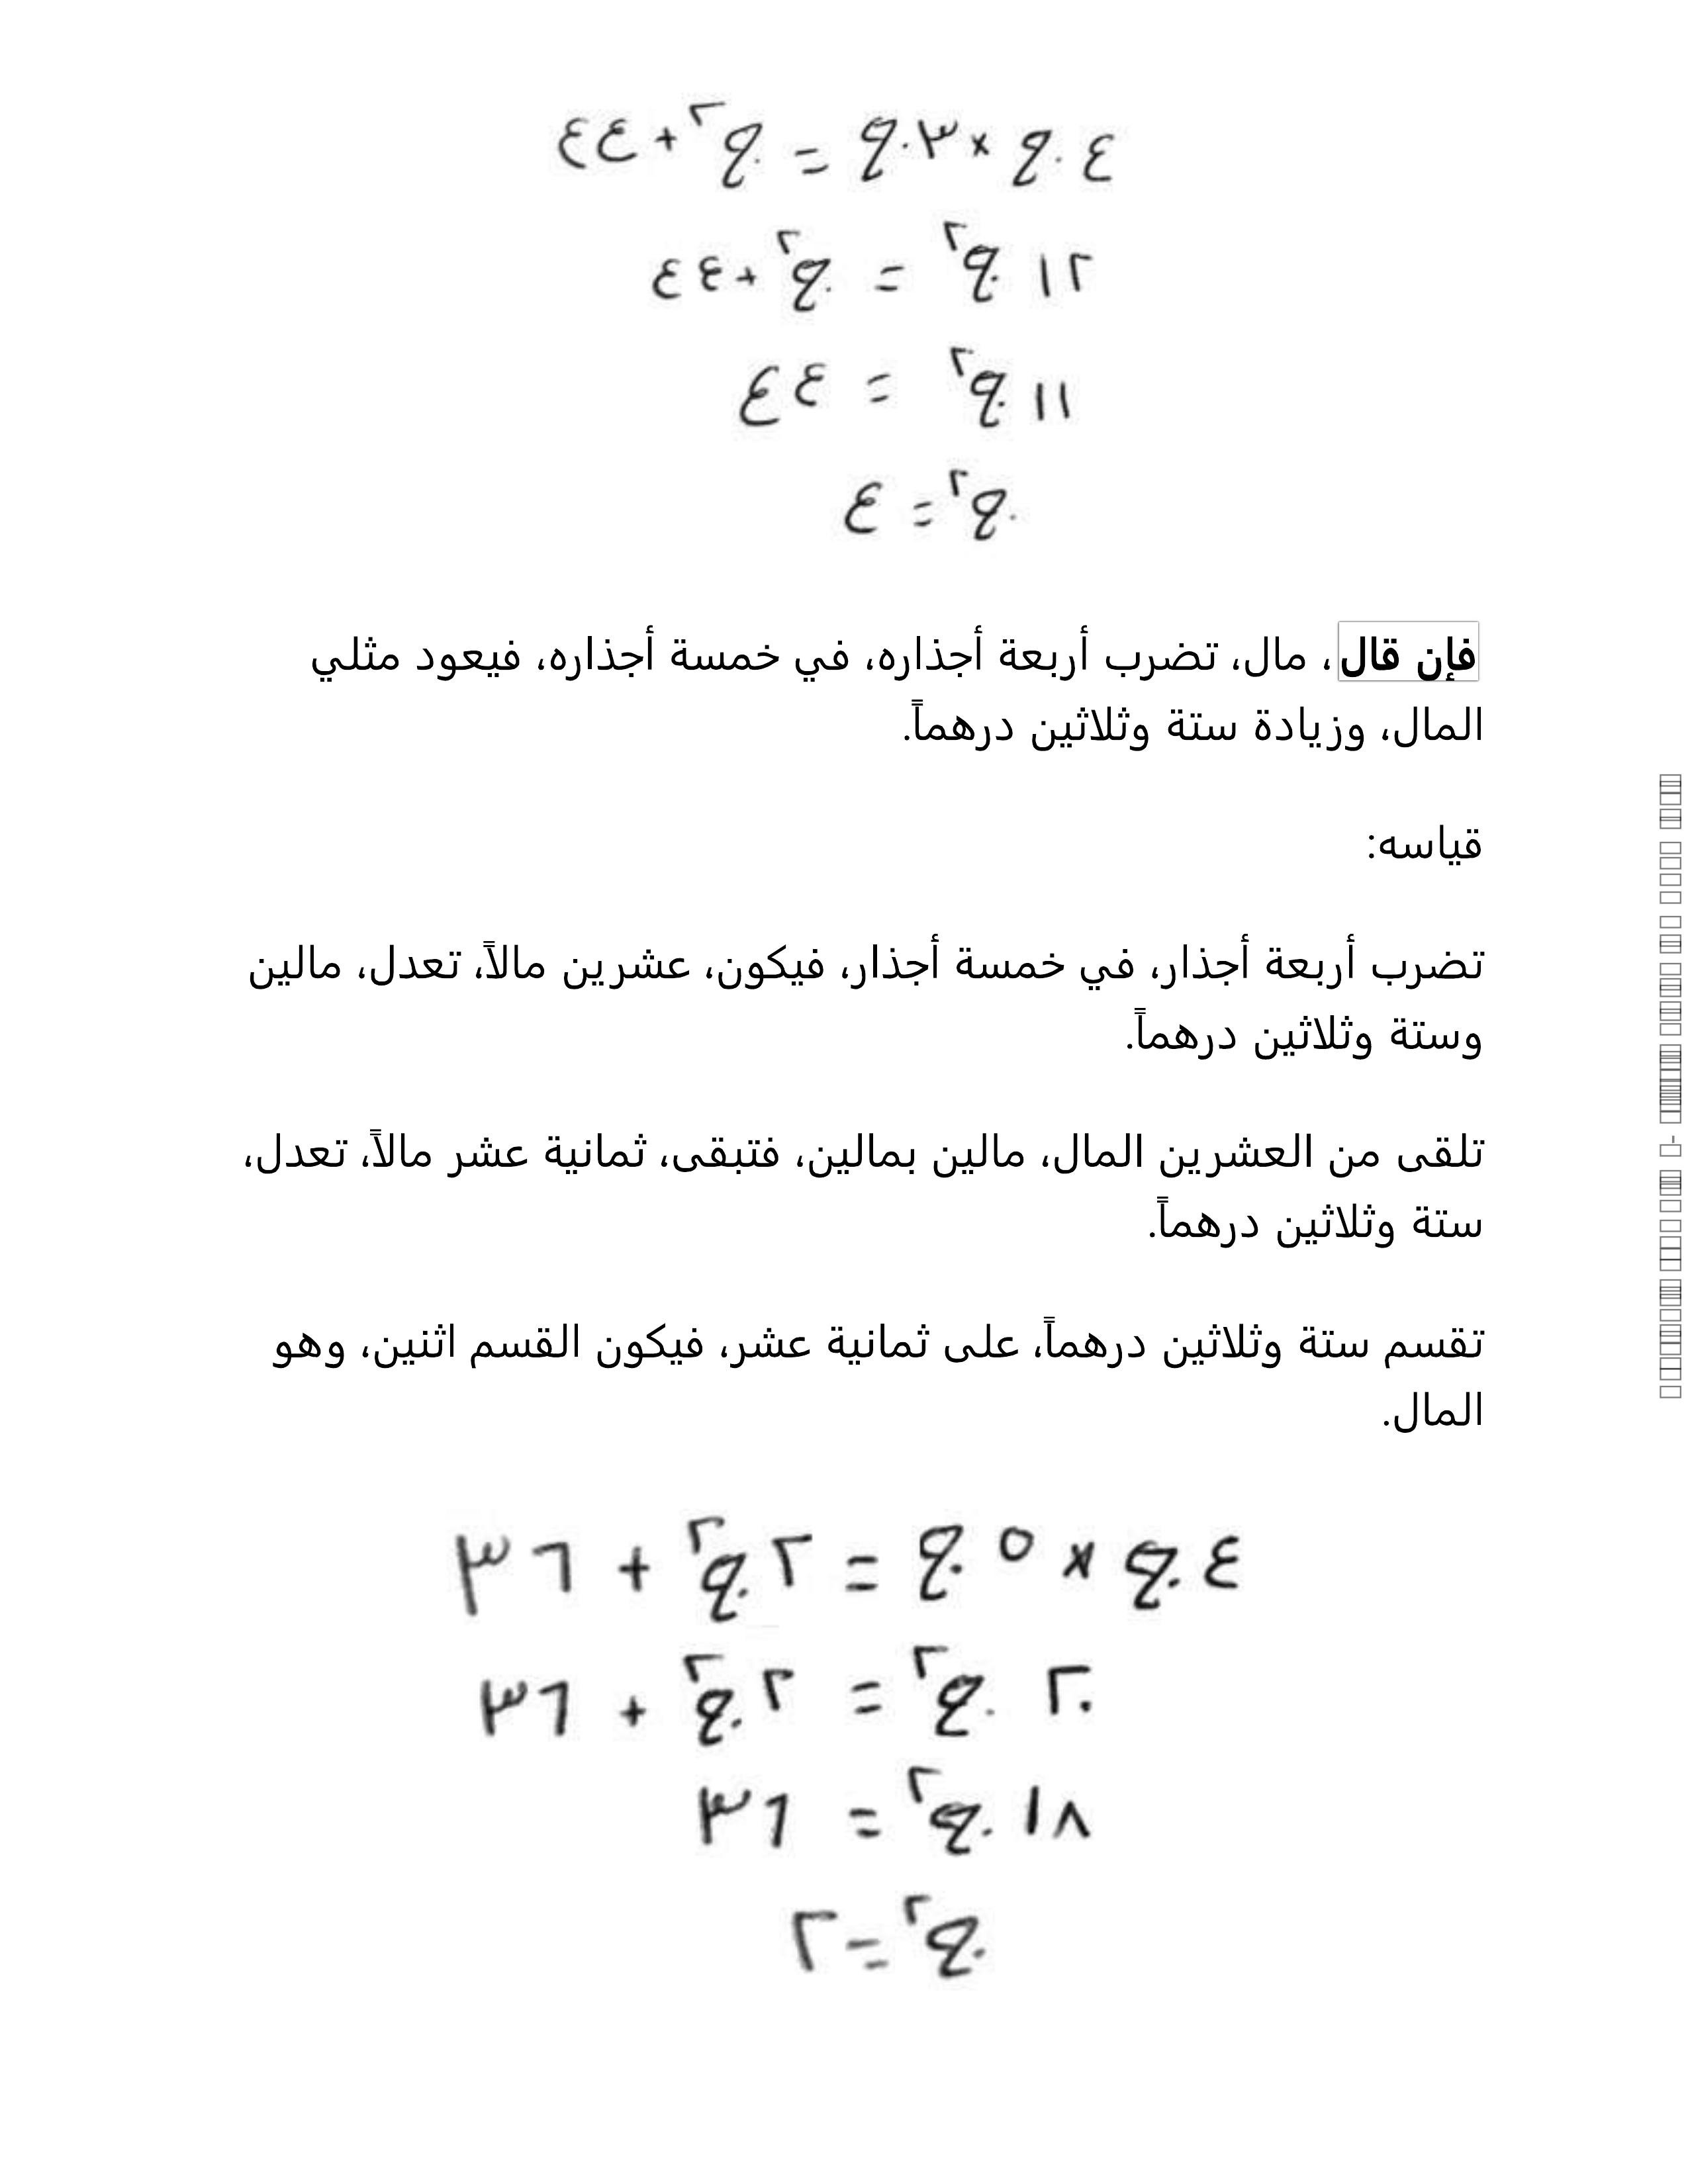 ٤ ج × ٣ ج = ج² + ٤٤
١٢ ج² = ج² + ٤٤
١١ ج² = ٤٤
ج² = ٤
فإن قال، مال، تضرب أربعة أجذاره، في خمسة أجذاره، فيعود مثلي
المال، وزيادة ستة وثلاثين درهماً.
قياسه:
تضرب أربعة أجذار، في خمسة أجذار، فيكون، عشرين مالاً، تعدل، مالين
وستة وثلاثين درهماً.
تلقى من العشرين المال، مالين بمالين، فتبقى، ثمانية عشر مالاً، تعدل،
ستة وثلاثين درهماً.
تقسم ستة وثلاثين درهماً، على ثمانية عشر، فيكون القسم اثنين، وهو
المال.
٤ ج × ٥ ج = ٢ ج² + ٣٦
٢٠ ج² = ٢ ج² + ٣٦
١٨ ج² = ٣٦
ج² = ٢